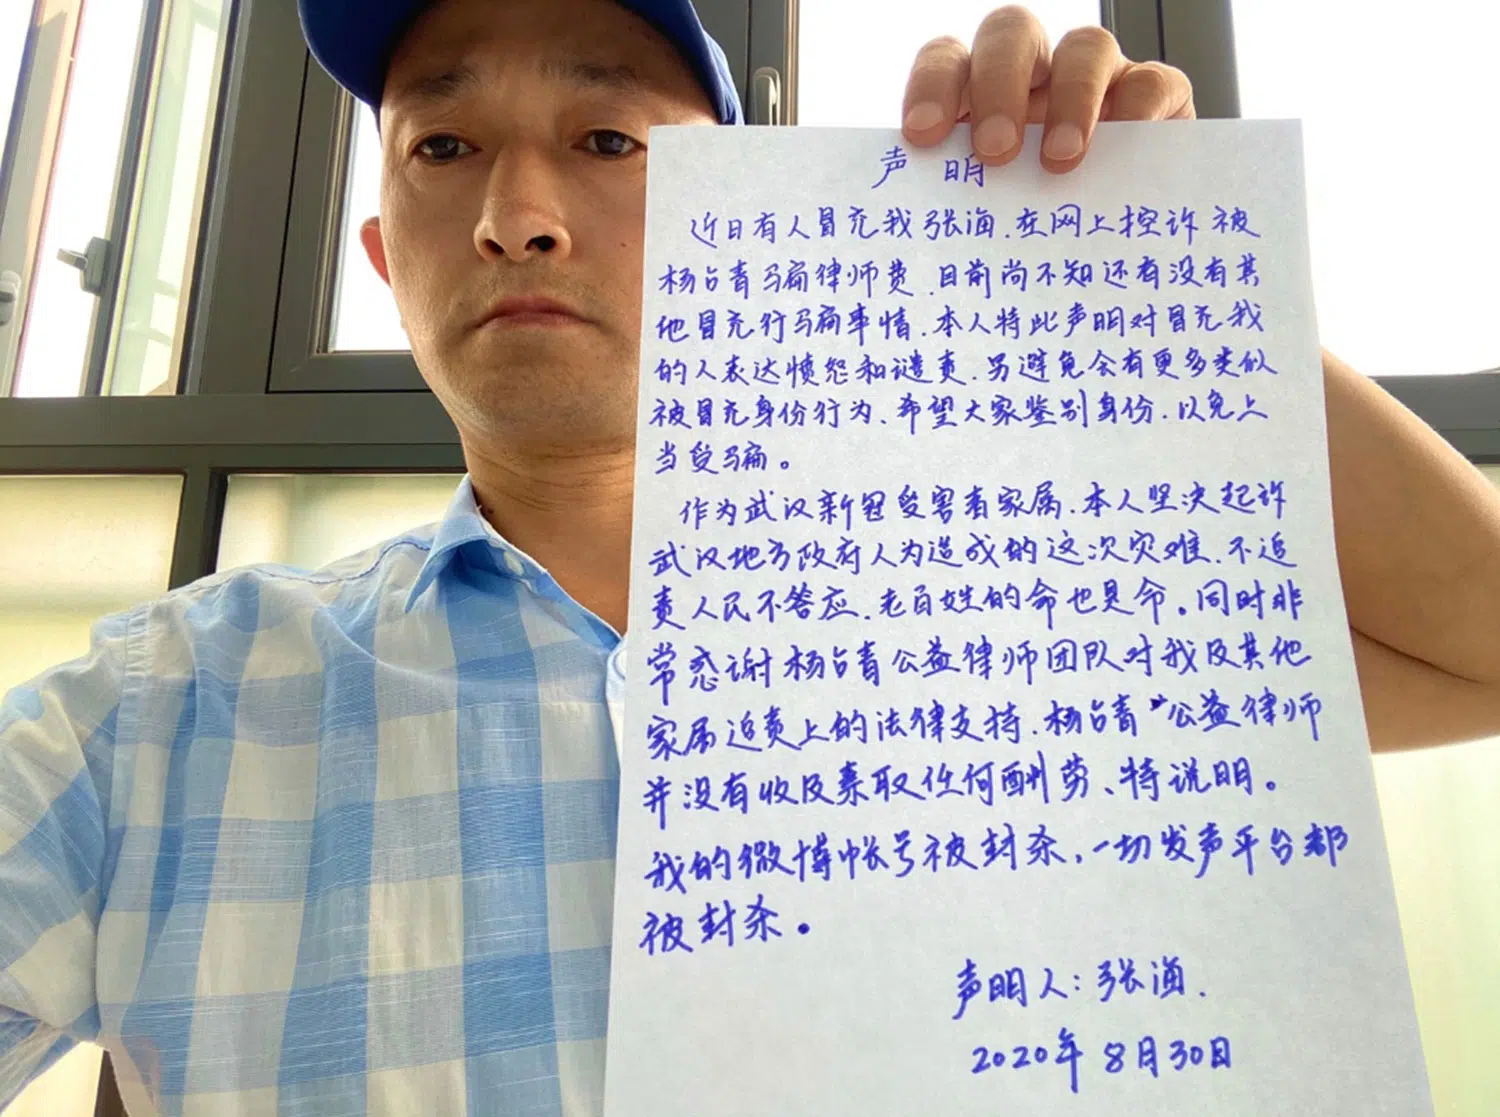 声明
近日有人冒充我张海.在网上控诉被
杨占青骗律师费.目前尚不知还有没有其
他冒充行骗事情.本人特此声明对冒充我
的人表达愤怒和谴责.另避免会有更多类似
被冒充身份行为.希望大家鉴别身份.以免上
当受骗。
作为武汉新冠受害者家属.本人坚决起诉
武汉地方政府人为造成的这次灾难.不追
责人民不答应.老百姓的命也是命。同时非
常感谢杨占青公益律师团队对我及其他
家属追责上的法律支持.杨占青“公益律师
并没有收及索取任何酬劳、特说明。
我的微博帐号被封杀,一切发声平台都
被封杀。
声明人:张海.
2020年8月30日